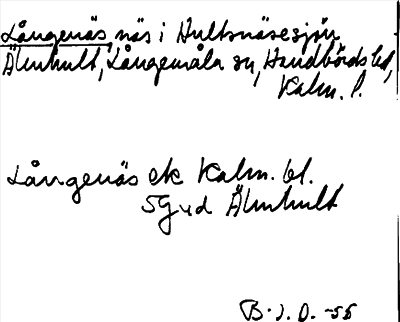 Långenäs, näs i Hultsnäsesjön
Älmhult, Långemåla sn, Handbörds hd,
Kalm. l.
Långenäs ek Kalm. bl.
5G vd Älmhult
B.J.O. -56